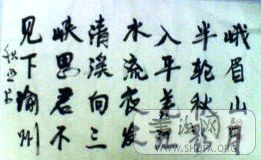 峨眉山月
半轮秋
入平羌江
水流夜发
清溪向三
峡思君不
见下渝州